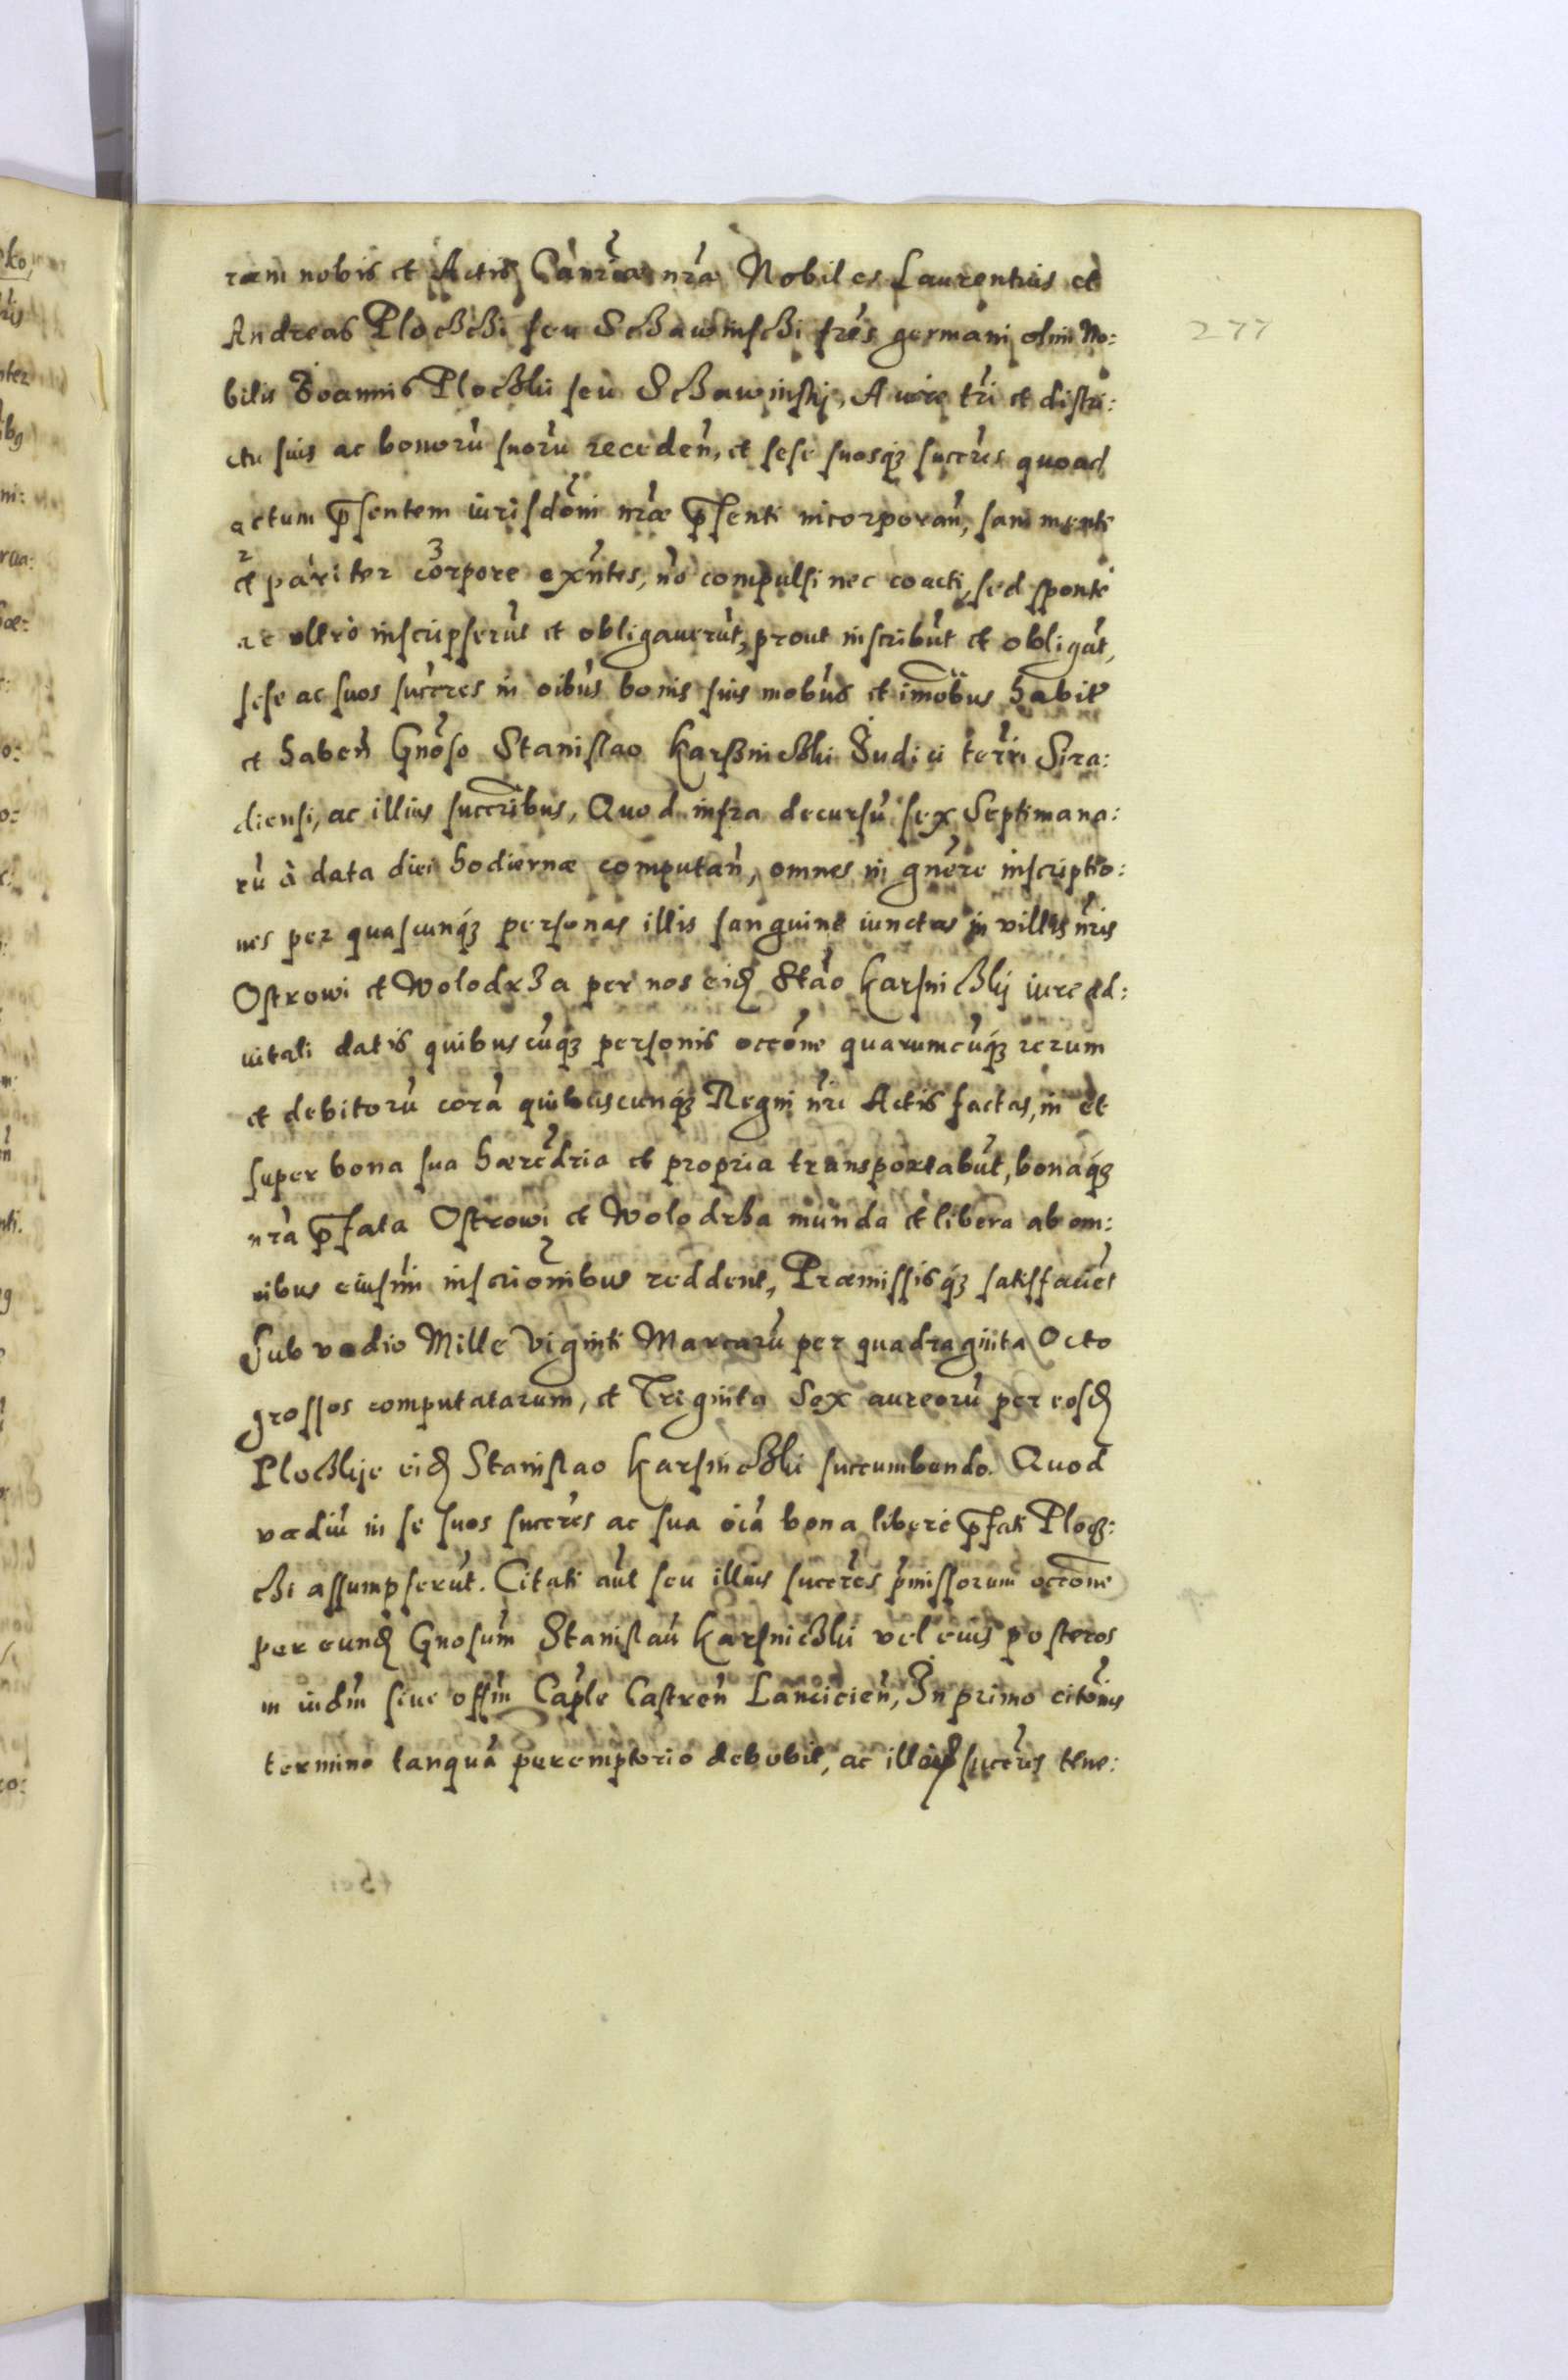 ram nobis et Actis Canrÿa nrã Nobiles Laurentius et
Andreas Plochchi seu Schawinschi frẽs germani olim No:
bilis Joannis Plochkii seu Schawinskj, A iure tri et distri:
ctu suis ac bonorũ suorũ receden̄, et sese suosq3 succres quoad
actum p̄sentem iurisdõni nr̃æ p̄senti incorporan̄, sani mente
et pariter corpore exñtes, nõ compulsi nec coacti, sed sponte
ac ultro inscripserũt et obligaverũt, prout inscribũt et obligãt,
sese ac suos succres in oibus bonis suis mobũs et imõbus habit̃
et haben̄ Gnõso Stanislao Karsznichki Judici terrĩ Sira:
diensi, ac illius succribus, Quod infra decursũ sex Septimana:
rũ à data diei hodiernæ computan̄, omnes in gnẽre inscriptio:
nes per quascunq3 personas illis sanguine iunctas in villis nr̃is
Ostrowi et Wolodrza per nos eid Stão Karsnichkij iure ad:
vitali datis quibuscũq3 personis occõne quarumcũq3 rerum
et debitorũ corã quibuscunq3 Regni nr̃i Actis factas, in et
super bona sua hæredria et propria transportabũt, bonaq3
nrã p̄fata Ostrowi et Wolodrza munda et libera ab om:
nibus eiusm̃i inscriõnibus reddent, Præmissisq3 satisfaciẽt
Sub vadio Mille Viginti Marcarũ per quadraginta Octo
grossos computatarum, et Triginta Sex aureorũ per eosd
Plochkije eid Stanislao Karsnichki succumbendo. Quod
vadiũ in se suos succres ac sua oiã bona libere p̄fati Ploch:
chi assumpserũt. Citati aũt seu illius succres p̄missorum occõne
per eund Gnosum Stanislaũ Karsnichki vel eius posteros
in iudm̃ sive offm̃ Caplẽ Castren̄ Lancicien̄, In primo citõnis
termino tanquã peremptorio debebit, ac succres tene:
277